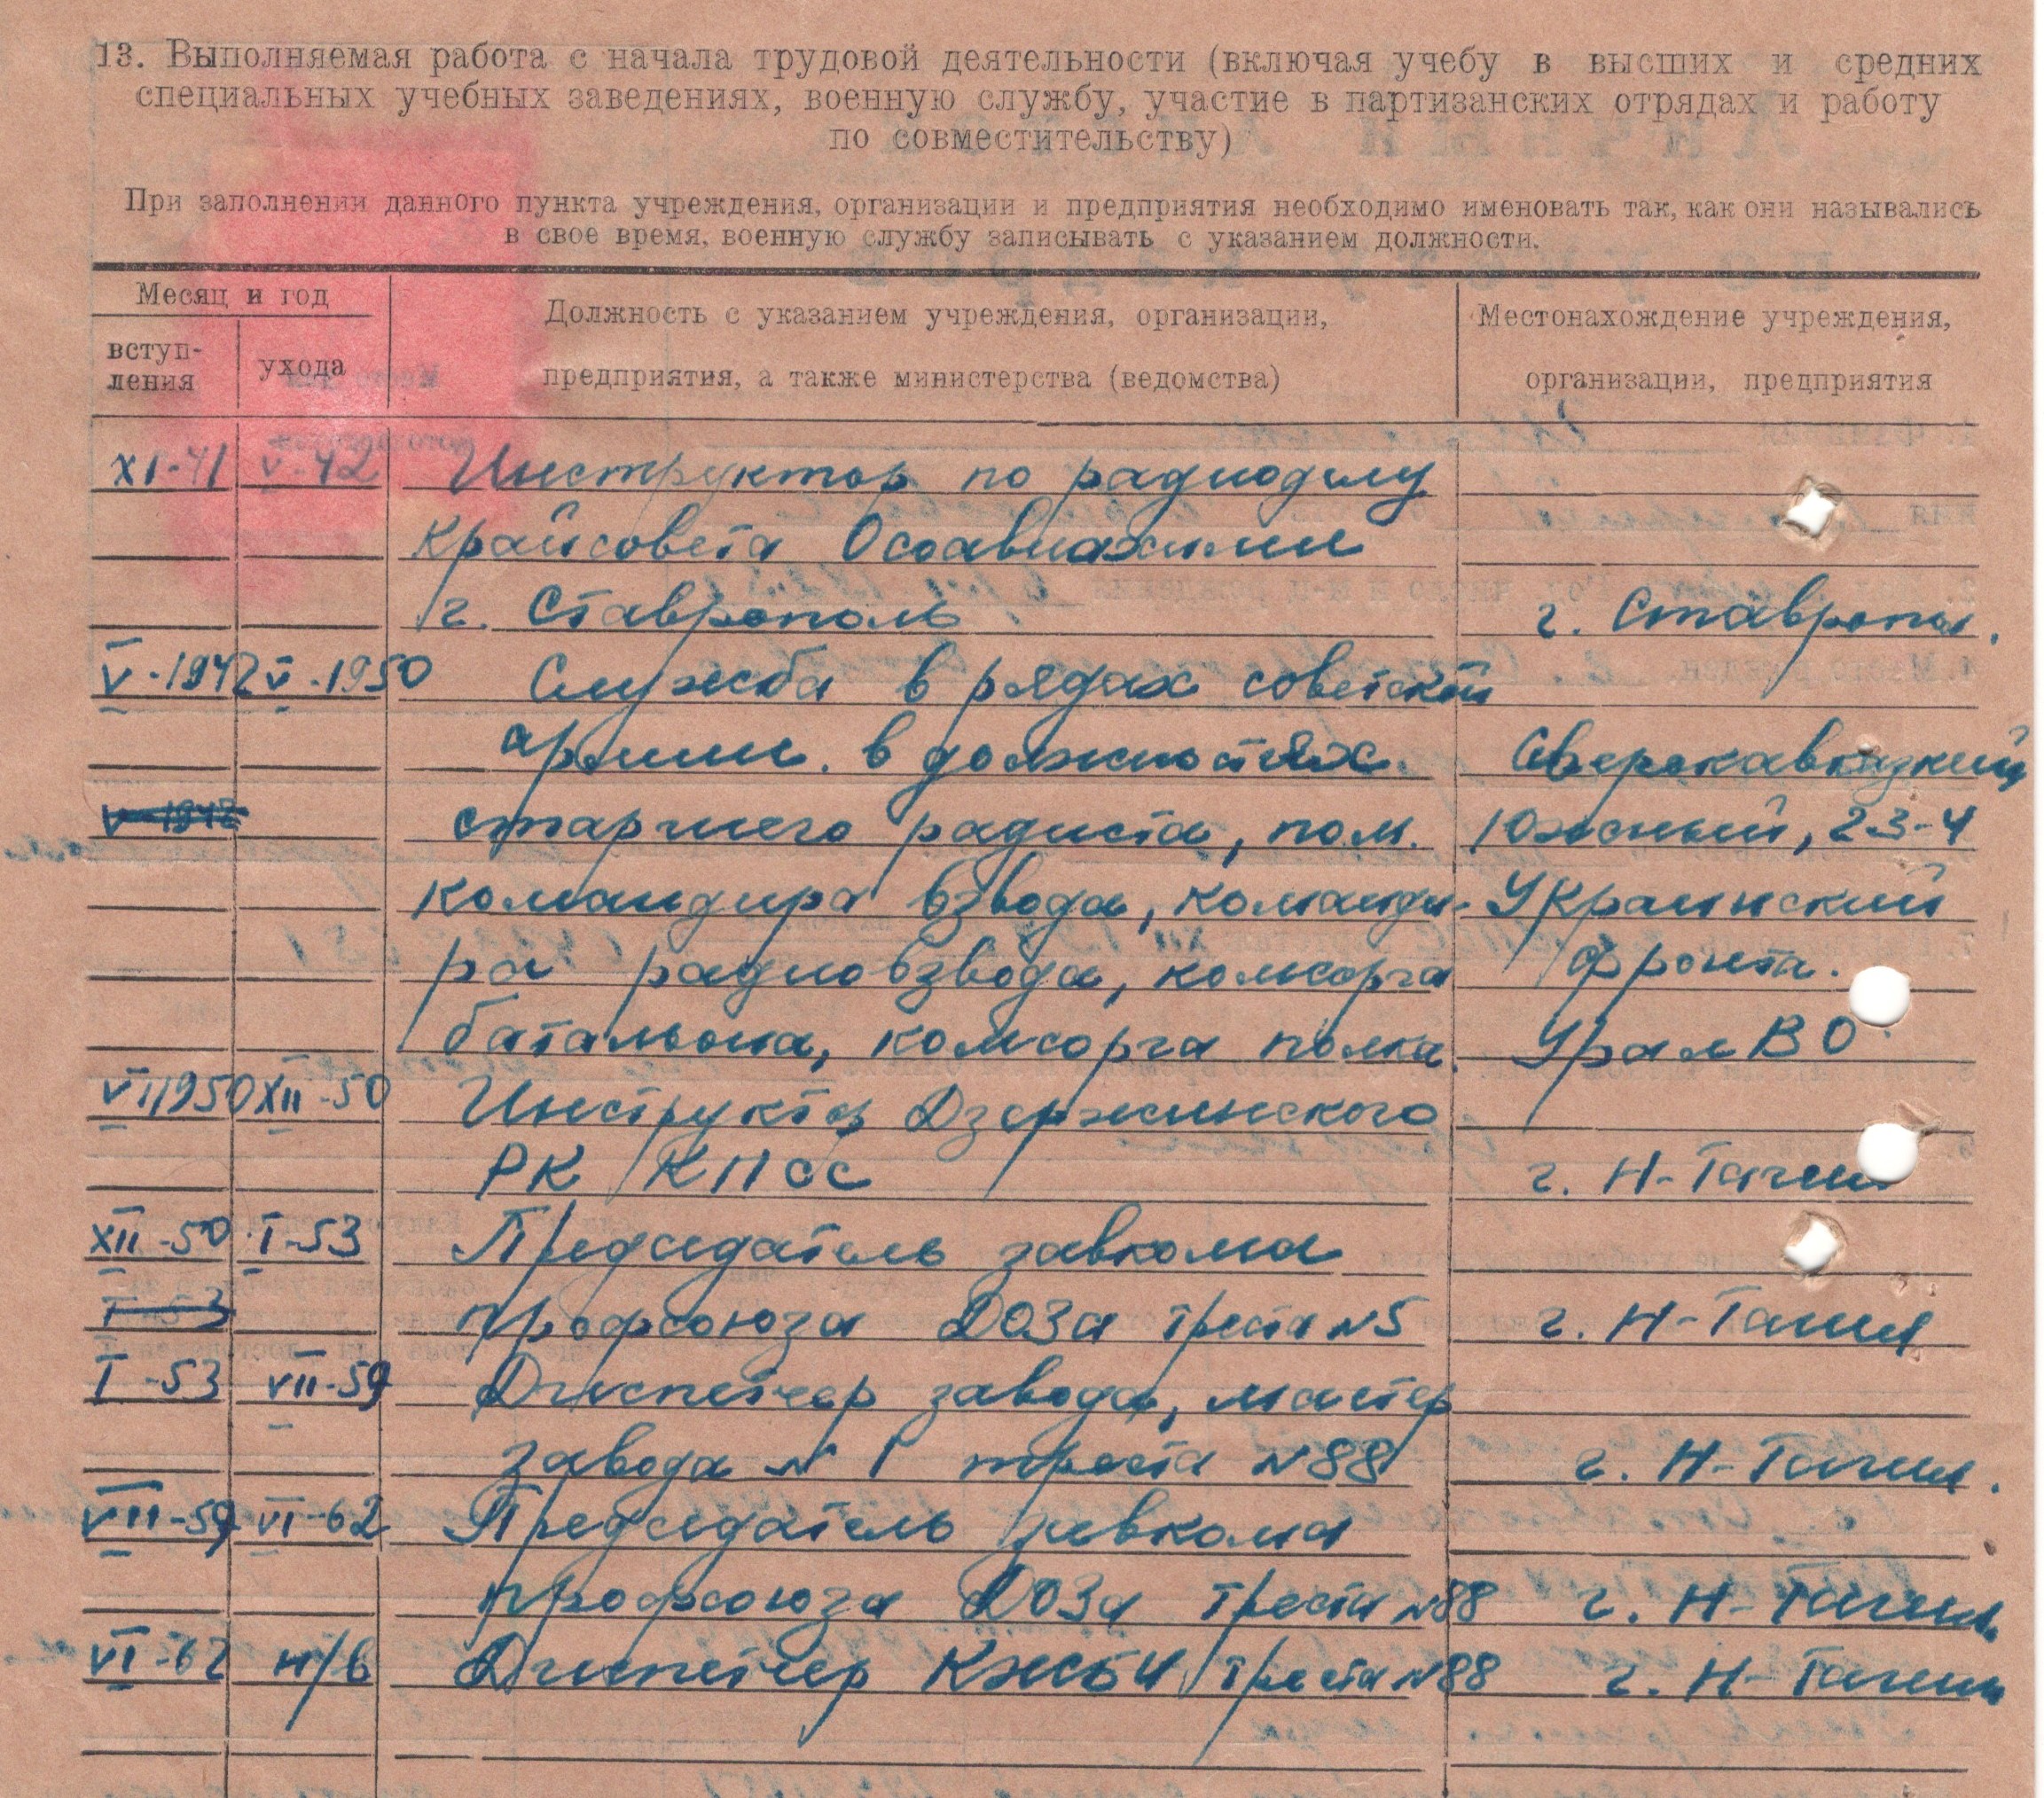 13. Выполняемая работа с начала трудовой деятельности (включая учебу в высших и средних
специальных учебных заведениях, военную службу, участие в партизанских отрядах и работу
по совместительству)
При заполнении данного пункта учреждения, организации и предприятия необходимо именовать так, как они назывались
в свое время, военную службу записывать с указанием должности.
Месяц и год
вступ-
ления
ухода
Должность с указанием учреждения, организации,
предприятия, а также министерства (ведомства)
Местонахождение учреждения,
организации, предприятия
XI-41 V-42 Инструктор по радиоделу
Крайсовета Осоавиахима
г. Ставрополь г. Ставропол.
V-1942 V-1950 Служба в рядах советской
армии. в должностях
V-1942 старшего радиста, пом. Южный, 2 3-4
командира взвода, команди- Украинский
ра радиовзвода, комсорга фронта.
батальона, комсорга полка. Урал ВО
VI 1950 XII-50 Инструктор Дзержинского
РК КПСС г. Н-Тагил
XII-50 I-53 Председатель завкома
I-53 профсоюза ДОЗа треста №5 г. Н-Тагил
I-53 VII-59 Диспетчер завода, мастер
завода № 1 треста №88 г. Н-Тагил.
VII-59 VI-62 Председатель завкома
профсоюза ДОЗа треста №88 г. Н-Тагил
VI-62 н/в Диспетчер КЖБИ треста №88 г. Н-Тагил